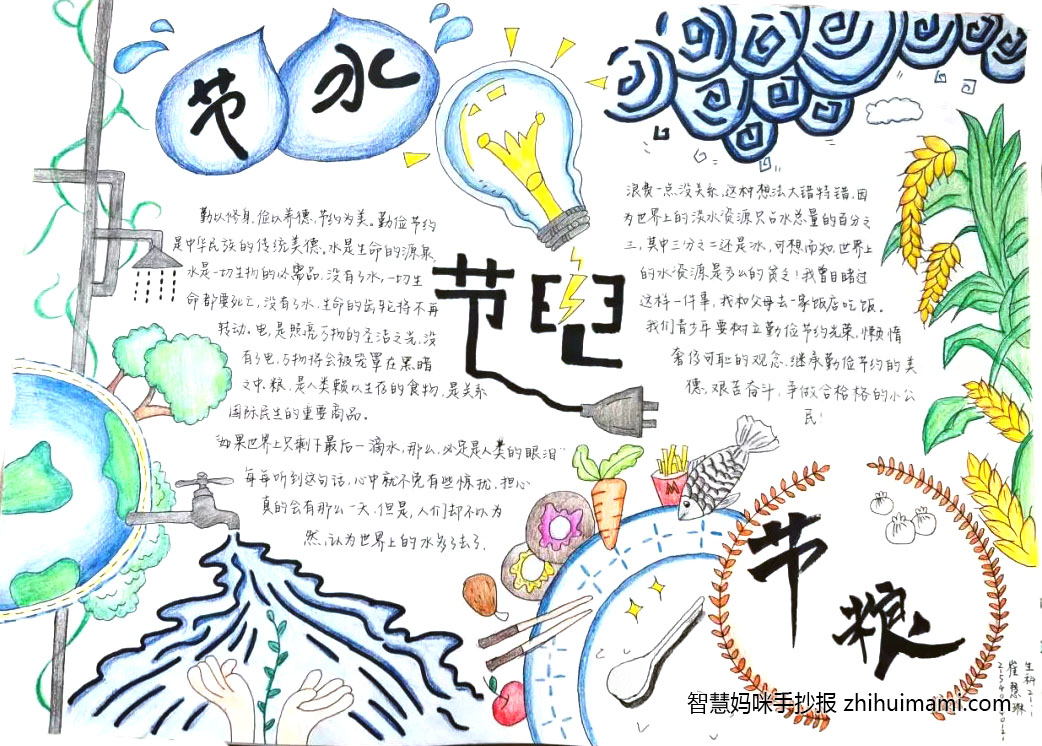 节水
节电
勤以修身,俭以养德,节约为美。勤俭节约
是中华民族的传统美德。水是生命的源泉,
水是一切生物的必需品,没有了水,一切生
命都要死亡,没有了水,生命的齿轮将不再
转动。电,是照亮万物的圣洁之光,没
有了电,万物将会被笼罩在黑暗
之中。粮,是人类赖以生存的食物,是关系
国际民生的重要商品。
“如果世界上只剩下最后一滴水,那么,必定是人类的眼泪”
每每听到这句话,心中就不免有些惊扰,担心
真的会有那么一天。但是,人们却不以为
然,认为世界上的水多了去了。
浪费一点没关系,这种想法大错特错,因
为世界上的淡水资源只占水总量的百分之
三,其中三分之二还是冰,可想而知,世界上
的水资源是多么的贫乏!我曾目睹过
这样一件事,我和父母去一家饭店吃饭。
我们青少年要树立勤俭节约光荣,懒惰
奢侈可耻的观念,继承勤俭节约的美
德,艰苦奋斗,争做合格格的小公
民!
M
节粮
生科
智慧妈咪手抄报 zhihuimami.com